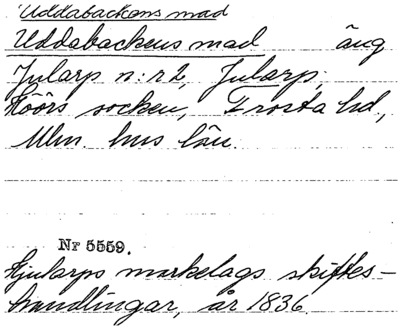 Uddabackens mad
Uddabackens mad äng
Jularp n:r 2, Jularp,
Höörs socken, Frosta hd,
Mlm. hus län.
Nr 5559.
Hjularps markelags skiftes-
handlingar, år 1836.